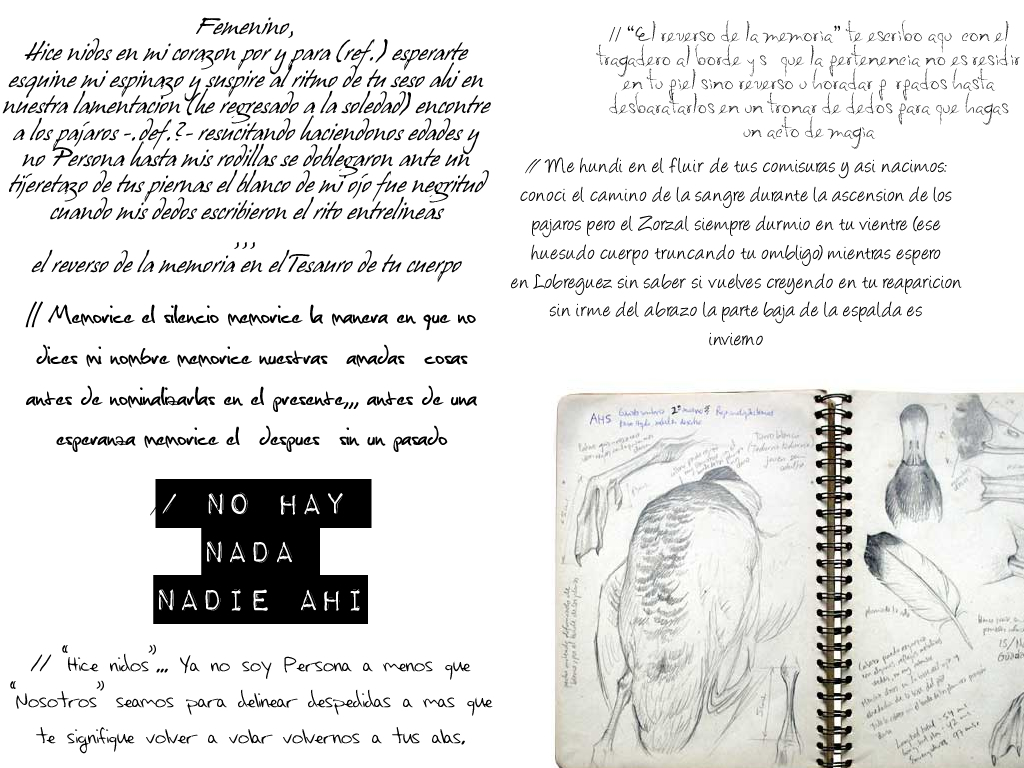 Femenino,
Hice nidos en mi corazon por y para (ref.) esperarte
esquine mi espinazo y suspire al ritmo de tu seso ahi en
nuestra lamentacion (he regresado a la soledad) encontre
a los pajaros -.def.?- resucitando haciendonos edades y
no Persona hasta mis rodillas se doblegaron ante un
tijeretazo de tus piernas el blanco de mi ojo fue negritud
cuando mis dedos escribieron el rito entrelineas
,,,
el reverso de la memoria en el Tesauro de tu cuerpo
// Memorice el silencio memorice la manera en que no
dices mi nombre memorice nuestras amadas cosas
antes de nominalizarlas en el presente,,, antes de una
esperanza memorice el despues sin un pasado
/ NO HAY
NADA
NADIE AHI
// "Hice nidos",,, Ya no soy Persona a menos que
"Nosotros" seamos para delinear despedidas a mas que
te signifique volver a volar volvernos a tus alas.
// "El reverso de la memoria" te escribo aqu con el
tragadero al borde y s que la pertenencia no es residir
en tu piel sino reverso u horadar p rpados hasta
desbaratarlos en un tronar de dedos para que hagas
un acto de magia
// Me hundi en el fluir de tus comisuras y asi nacimos:
conoci el camino de la sangre durante la ascension de los
pajaros pero el Zorzal siempre durmio en tu vientre (ese
huesudo cuerpo truncando tu ombligo) mientras espero
en Lobreguez sin saber si vuelves creyendo en tu reaparicion
sin irme del abrazo la parte baja de la espalda es
invierno
AHS